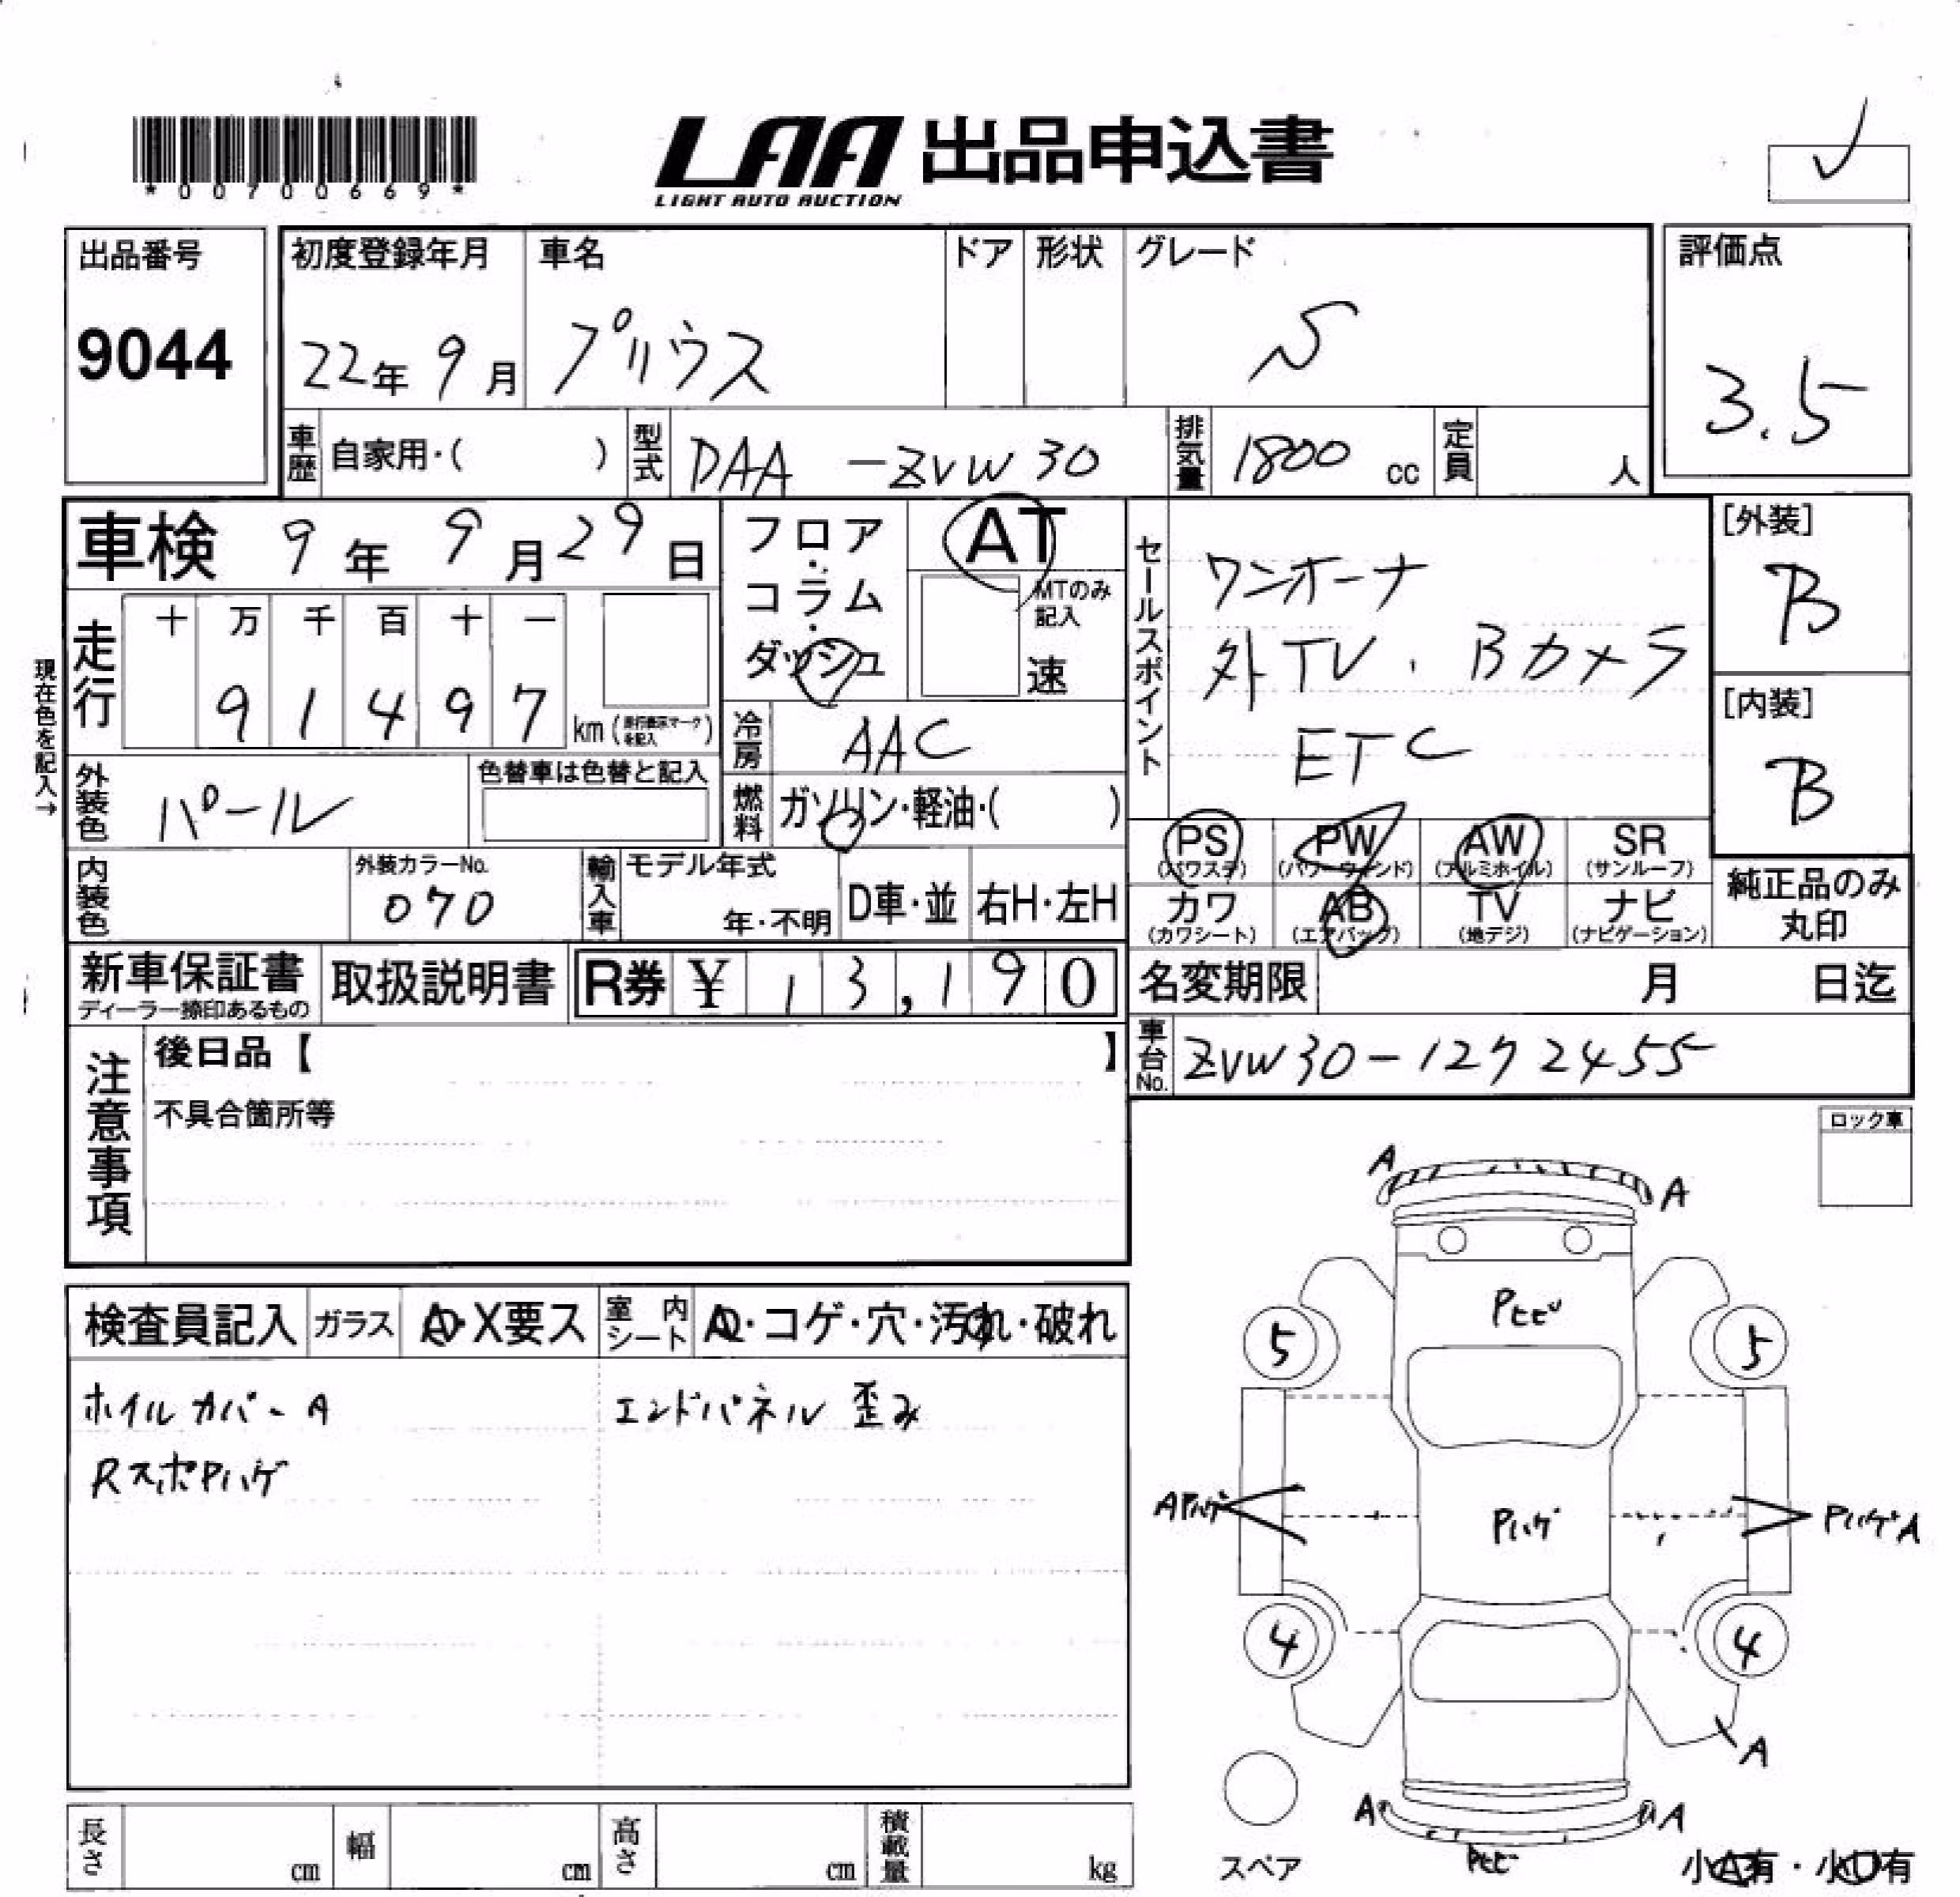 *00700669*
LAA 出品申込書
LIGHT AUTO AUCTION
出品番号
9044
初度登録年月
22年 9月
車名
プリウス
ドア
形状
グレード
S
評価点
3.5
車歴
自家用・( )
型式
DAA -ZVW30
排気量
1800 cc
定員
人
車検 9年 9月29日
フロア・コラム・ダッシュ
AT
MTのみ記入
速
セールスポイント
ワンオーナ
外TV. Bカメラ
ETC
[外装]
B
[内装]
B
現在色を記入→
走行
十 万 千 百 十 一
9 1 4 9 7 km (走行表示マークを記入)
冷房
AAC
外装色
パール
色替車は色替と記入
燃料
ガソリン・軽油・( )
PS
(パワステ)
PW
(パワーウィンド)
AW
(アルミホイル)
SR
(サンルーフ)
カワ
(カワシート)
AB
(エアバック)
TV
(地デジ)
ナビ
(ナビゲーション)
純正品のみ
丸印
内装色
外装カラーNo.
070
輸入車
モデル年式
年・不明
D車・並
右H・左H
新車保証書
ディーラー捺印あるもの
取扱説明書
R券 ¥ 13,190
名変期限 月 日迄
車台No.
ZVW30-1272455
注意事項
後日品【 】
不具合箇所等
ロック車
検査員記入
ガラス
A・X要ス
室内シート
A・コゲ・穴・汚れ・破れ
ホイルカバーA
RスポPハゲ
エンドパネル 歪み
A
A
Pヒビ
5
5
APハゲ
Pハゲ
PハゲA
4
4
A
A
A
Pヒビ
スペア
小A有・小U有
長さ cm
幅 cm
高さ cm
積載量 kg